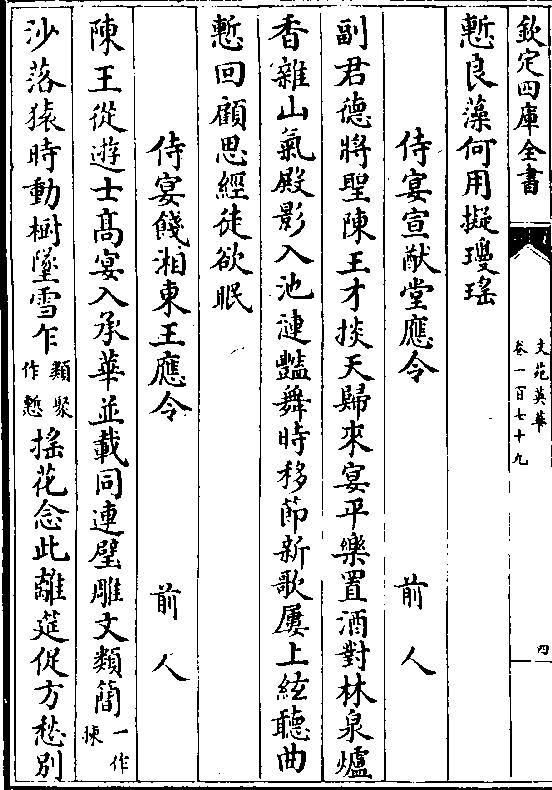 欽定四庫全書
文苑英華
卷一百七十九
四
慙良藻何用擬瓊瑤
侍宴宣猷堂應令 前人
副君德將聖陳王才掞天歸來宴平樂置酒對林泉爐
香雜山氣殿影入池漣豔舞時移節新歌屢上絃聽曲
慙回顧思經徒欲眠
侍宴餞湘東王應令 前人
陳王從遊士高宴入承華並載同連璧雕文類簡一作揀
沙落猿時動樹墜雪乍類聚作慙搖花念此離筵促方愁別